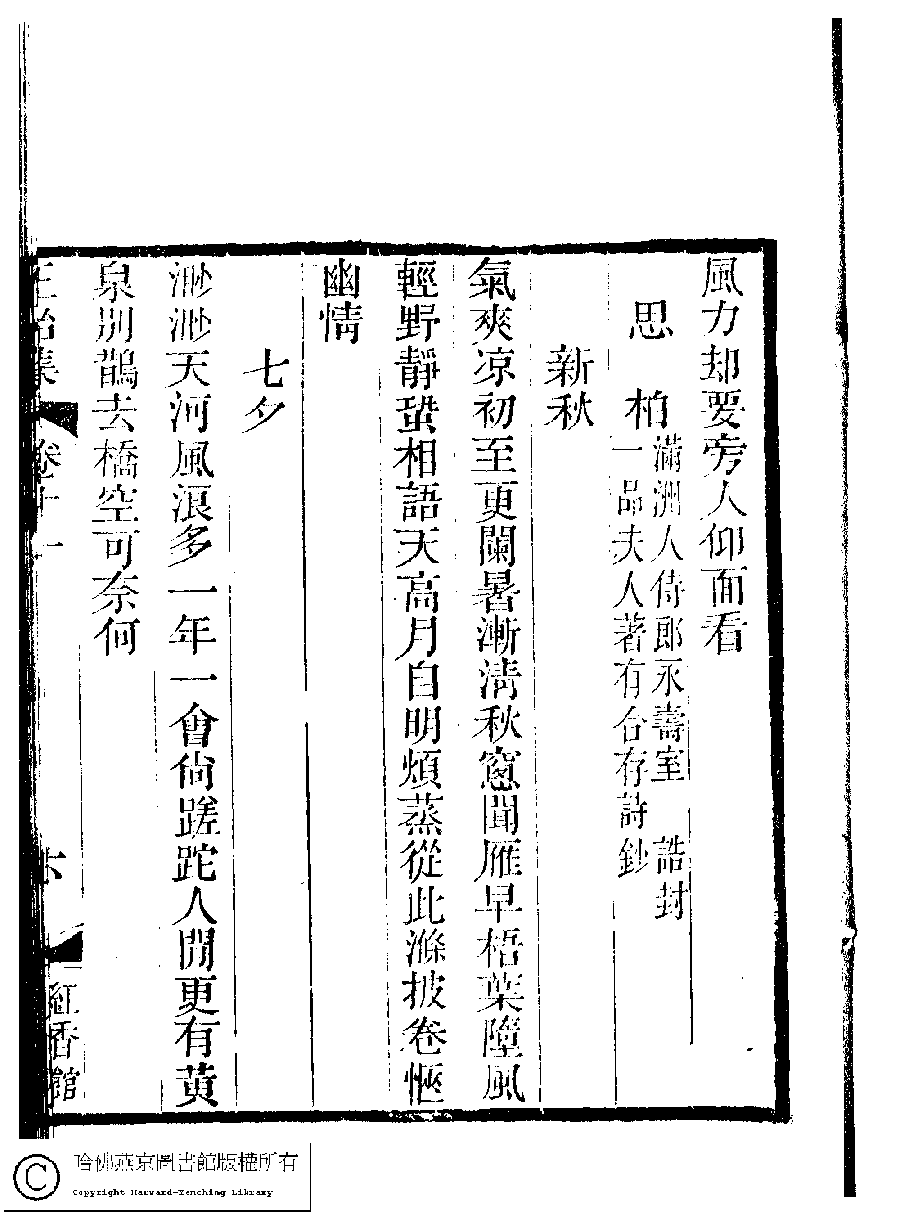 風力却要旁人仰面看
思柏
滿洲人侍郎永壽室 誥封
一品夫人著有合存詩鈔
新秋
氣爽凉初至更闌暑漸淸秋窻聞雁早梧葉墮風
輕野靜蛩相語天高月自明煩蒸從此滌披卷愜
幽情
七夕
渺渺天河風浪多一年一會尙蹉跎人閒更有黃
泉别鵲去橋空可奈何
正始集 卷十一 六 紅香館
哈佛燕京圖書館版權所有
Copyright Harvard-Yenching Library